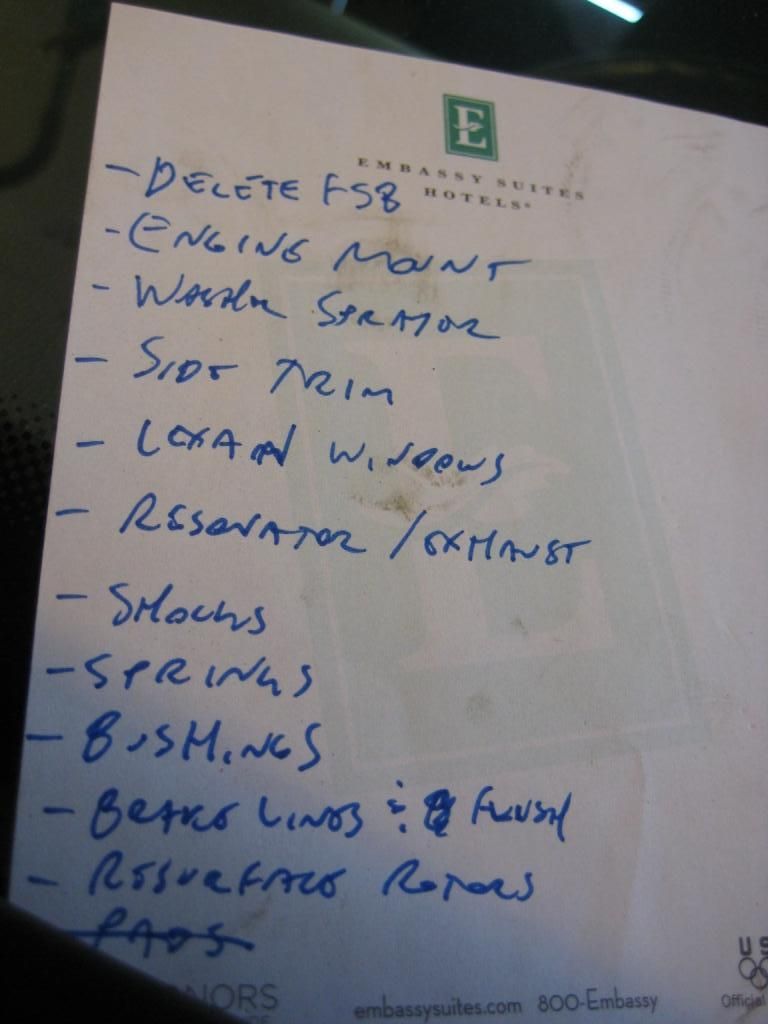 E
EMBASSY SUITES
HOTELS®
- DELETE FSB
- ENGINE MOUNT
- WASHER SPRATOR
- SIDE TRIM
- LEXAN WINDOWS
- RESONATOR / EXHAUST
- SHOCKS
- SPRINGS
- BUSHINGS
- BRAKE LINES & FLUSH
- RESURFACE ROTORS
- PADS
NORS
embassysuites.com 800-Embassy
US
Official